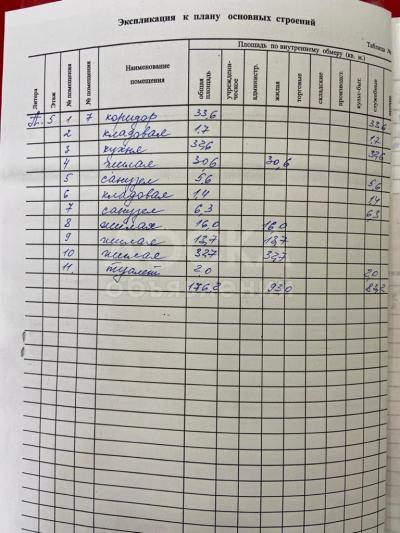 Экспликация к плану основных строений
Таблица №
Площадь по внутреннему обмеру (кв. м.)
Литера Этаж № помещения № помещения Наименование помещения общая площадь учрежденческое администр. жилая торговые складские производст. культ-быт. служебные
П. 5 1 7 коридор 33,6 33,6
2 кладовая 1,7 1,7
3 кухня 32,6 32,6
4 жилая 30,6 30,6
5 санузел 5,6 5,6
6 кладовая 1,4 1,4
7 санузел 6,3 6,3
8 жилая 16,0 16,0
9 жилая 13,7 13,7
10 жилая 32,7 32,7
11 туалет 2,0 2,0
176,2 93,0 83,2
объявления